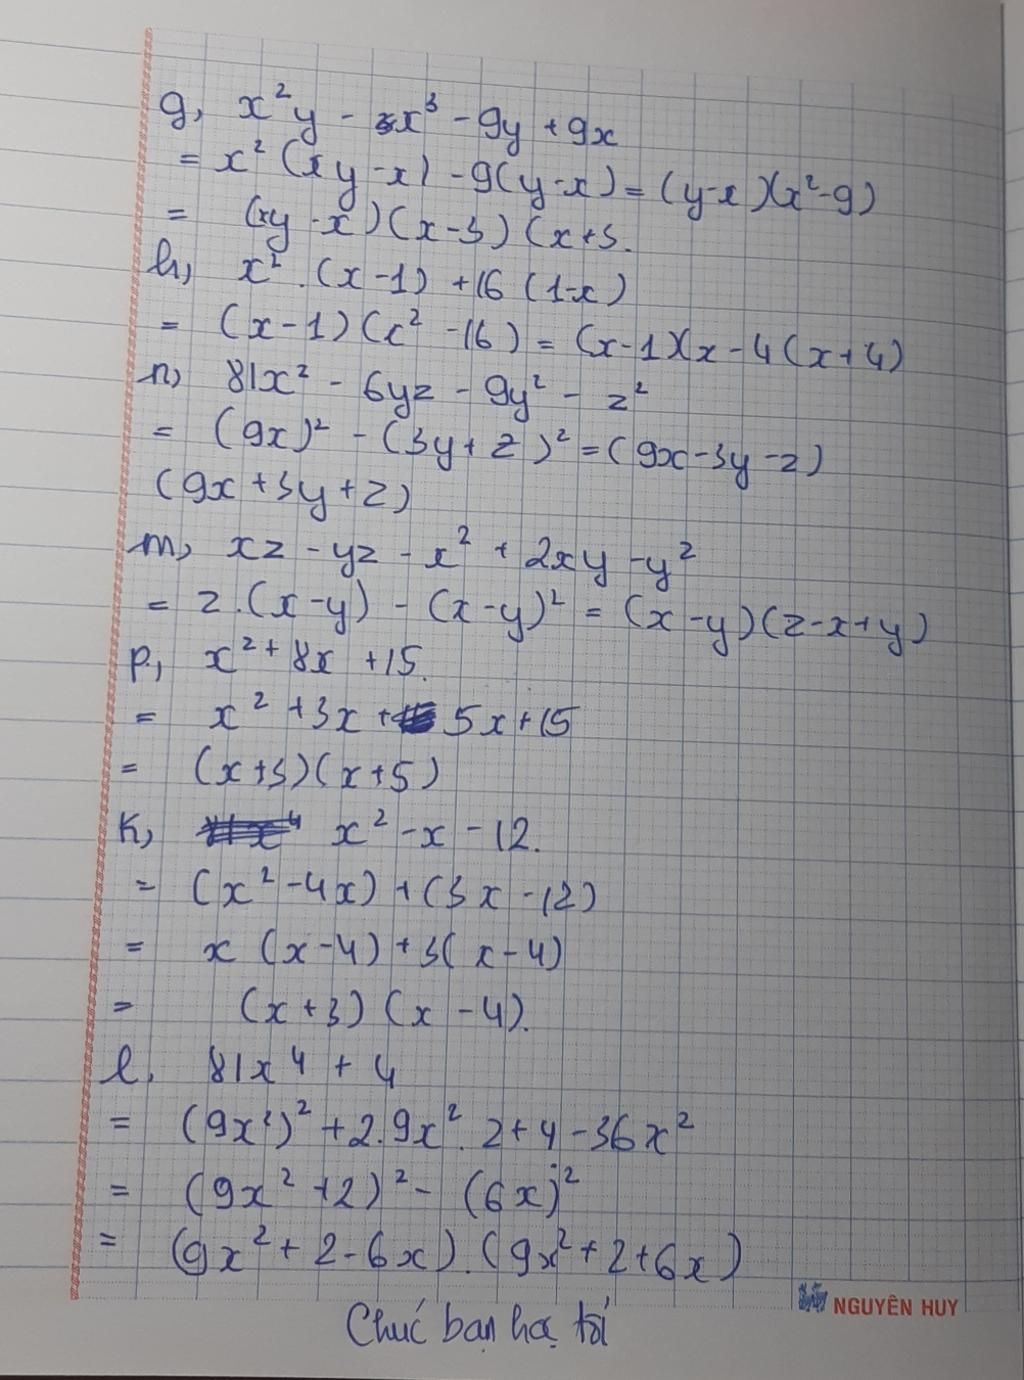 g, x²y - x³ - 9y + 9x
= x² (y - x) - 9(y - x) = (y-x)(x²-9)
= (y - x)(x-3)(x+3.
h, x² . (x-1) + 16 (1-x)
= (x-1)(x² -16) = (x-1)(x-4(x+4)
n, 81x² - 6yz - 9y² - z²
= (9x)² - (3y+z)² = (9x-3y-z)
(9x+3y+z)
m, xz - yz - x² + 2xy - y²
= z.(x-y) - (x-y)² = (x-y)(z-x+y)
p, x² + 8x + 15.
= x² + 3x + 5x + 15
= (x+3)(x+5)
K, x² - x - 12.
= (x² - 4x) + (3x - 12)
= x (x-4) + 3(x-4)
= (x+3) (x-4).
l, 81x⁴ + 4
= (9x²)² + 2.9x².2 + 4 - 36x²
= (9x² + 2)² - (6x)²
= (9x² + 2 - 6x).(9x² + 2 + 6x)
NGUYÊN HUY
Chúc bạn học tốt